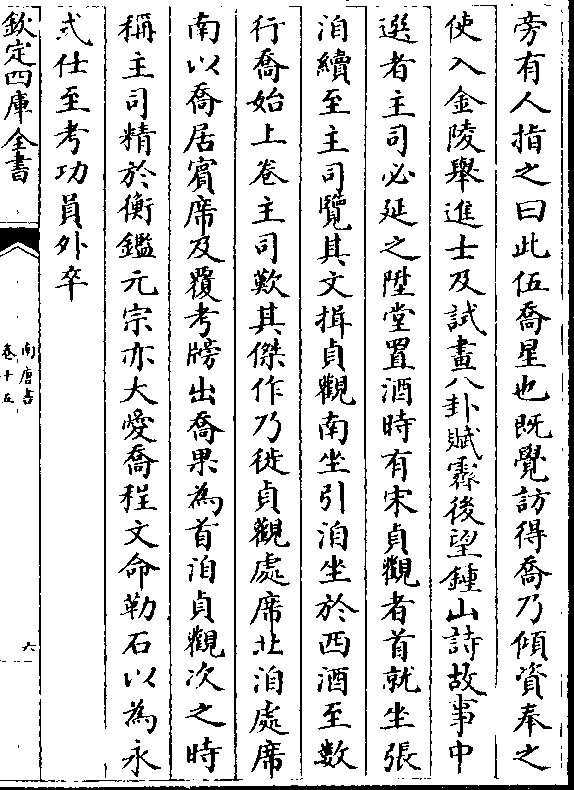 旁有人指之曰此伍喬星也既覺訪得喬乃傾資奉之
使入金陵舉進士及試畫八卦賦霽後望鍾山詩故事中
選者主司必延之陞堂置酒時有宋貞觀者首就坐張
洎續至主司覽其文揖貞觀南坐引洎坐於西酒至數
行喬始上卷主司歎其傑作乃徙貞觀處席北洎處席
南以喬居賓席及覆考牓出喬果為首洎貞觀次之時
稱主司精於衡鑑元宗亦大愛喬程文命勒石以為永
式仕至考功員外卒
欽定四庫全書
南唐書
卷十五
六